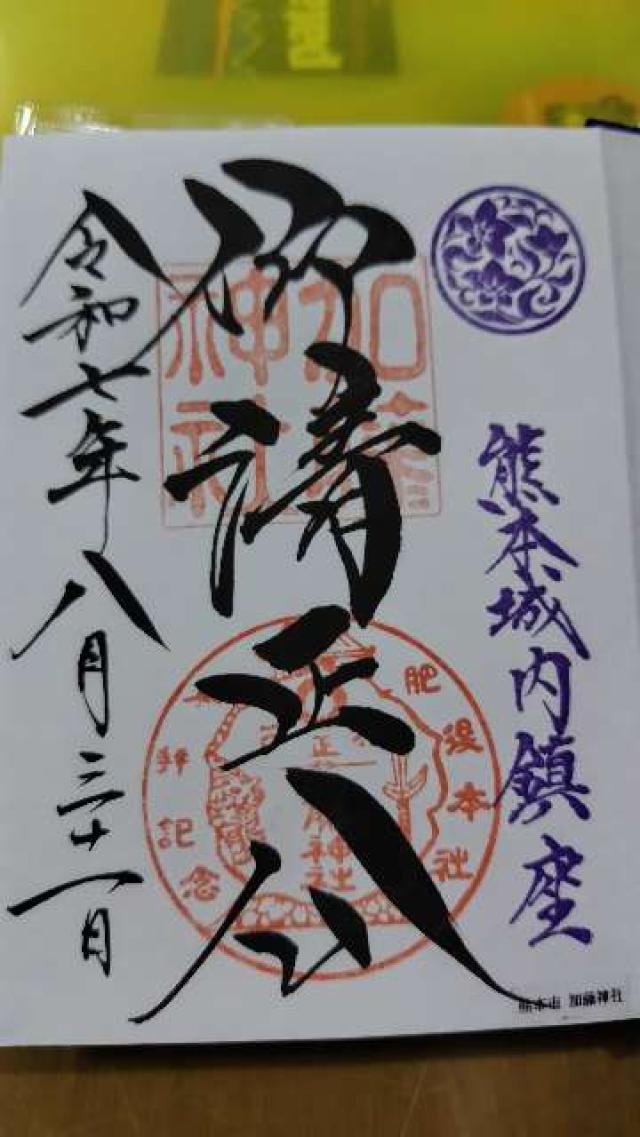 熊本城内鎮座
御清正公
加藤神社
肥後本社
拝記念
令和七年八月三十一日
熊本市 加藤神社